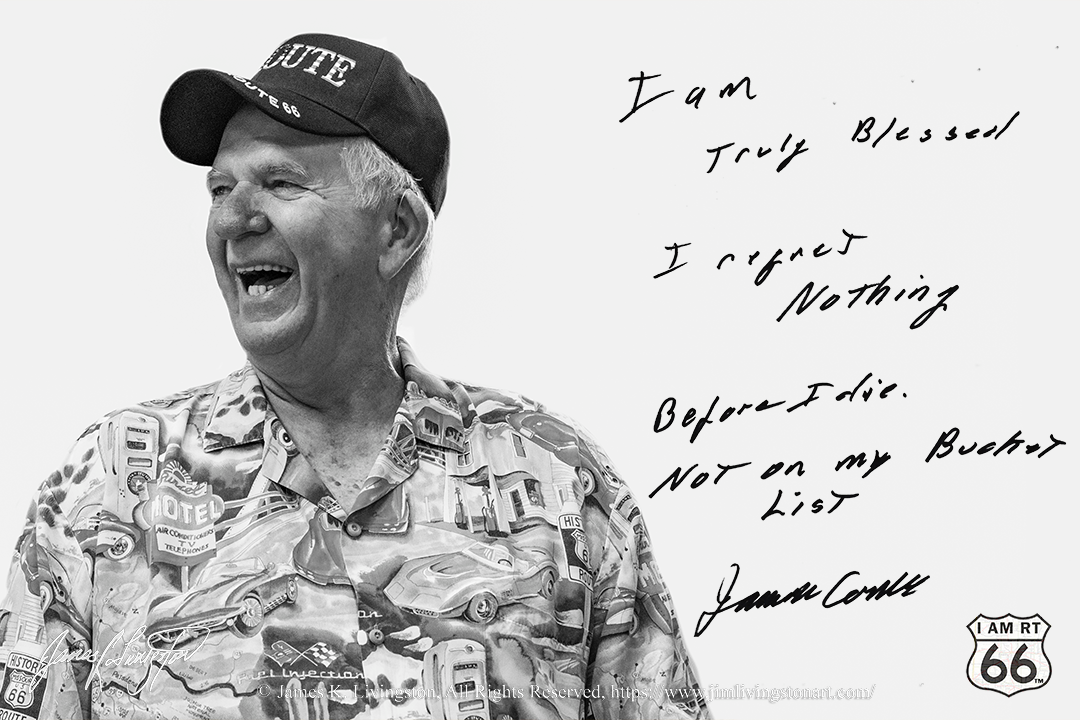 ROUTE
ROUTE 66
I am
Truly Blessed
I regret
Nothing
Before I die.
Not on my Bucket
List
MOTEL
AIR CONDITIONERS
TV
TELEPHONES
HIS
66
I AM RT
66
TM
HISTOR
66
ROUTE
Fuel Injection
© James K. Livingston, All Rights Reserved, https://www.jimlivingstonart.com/